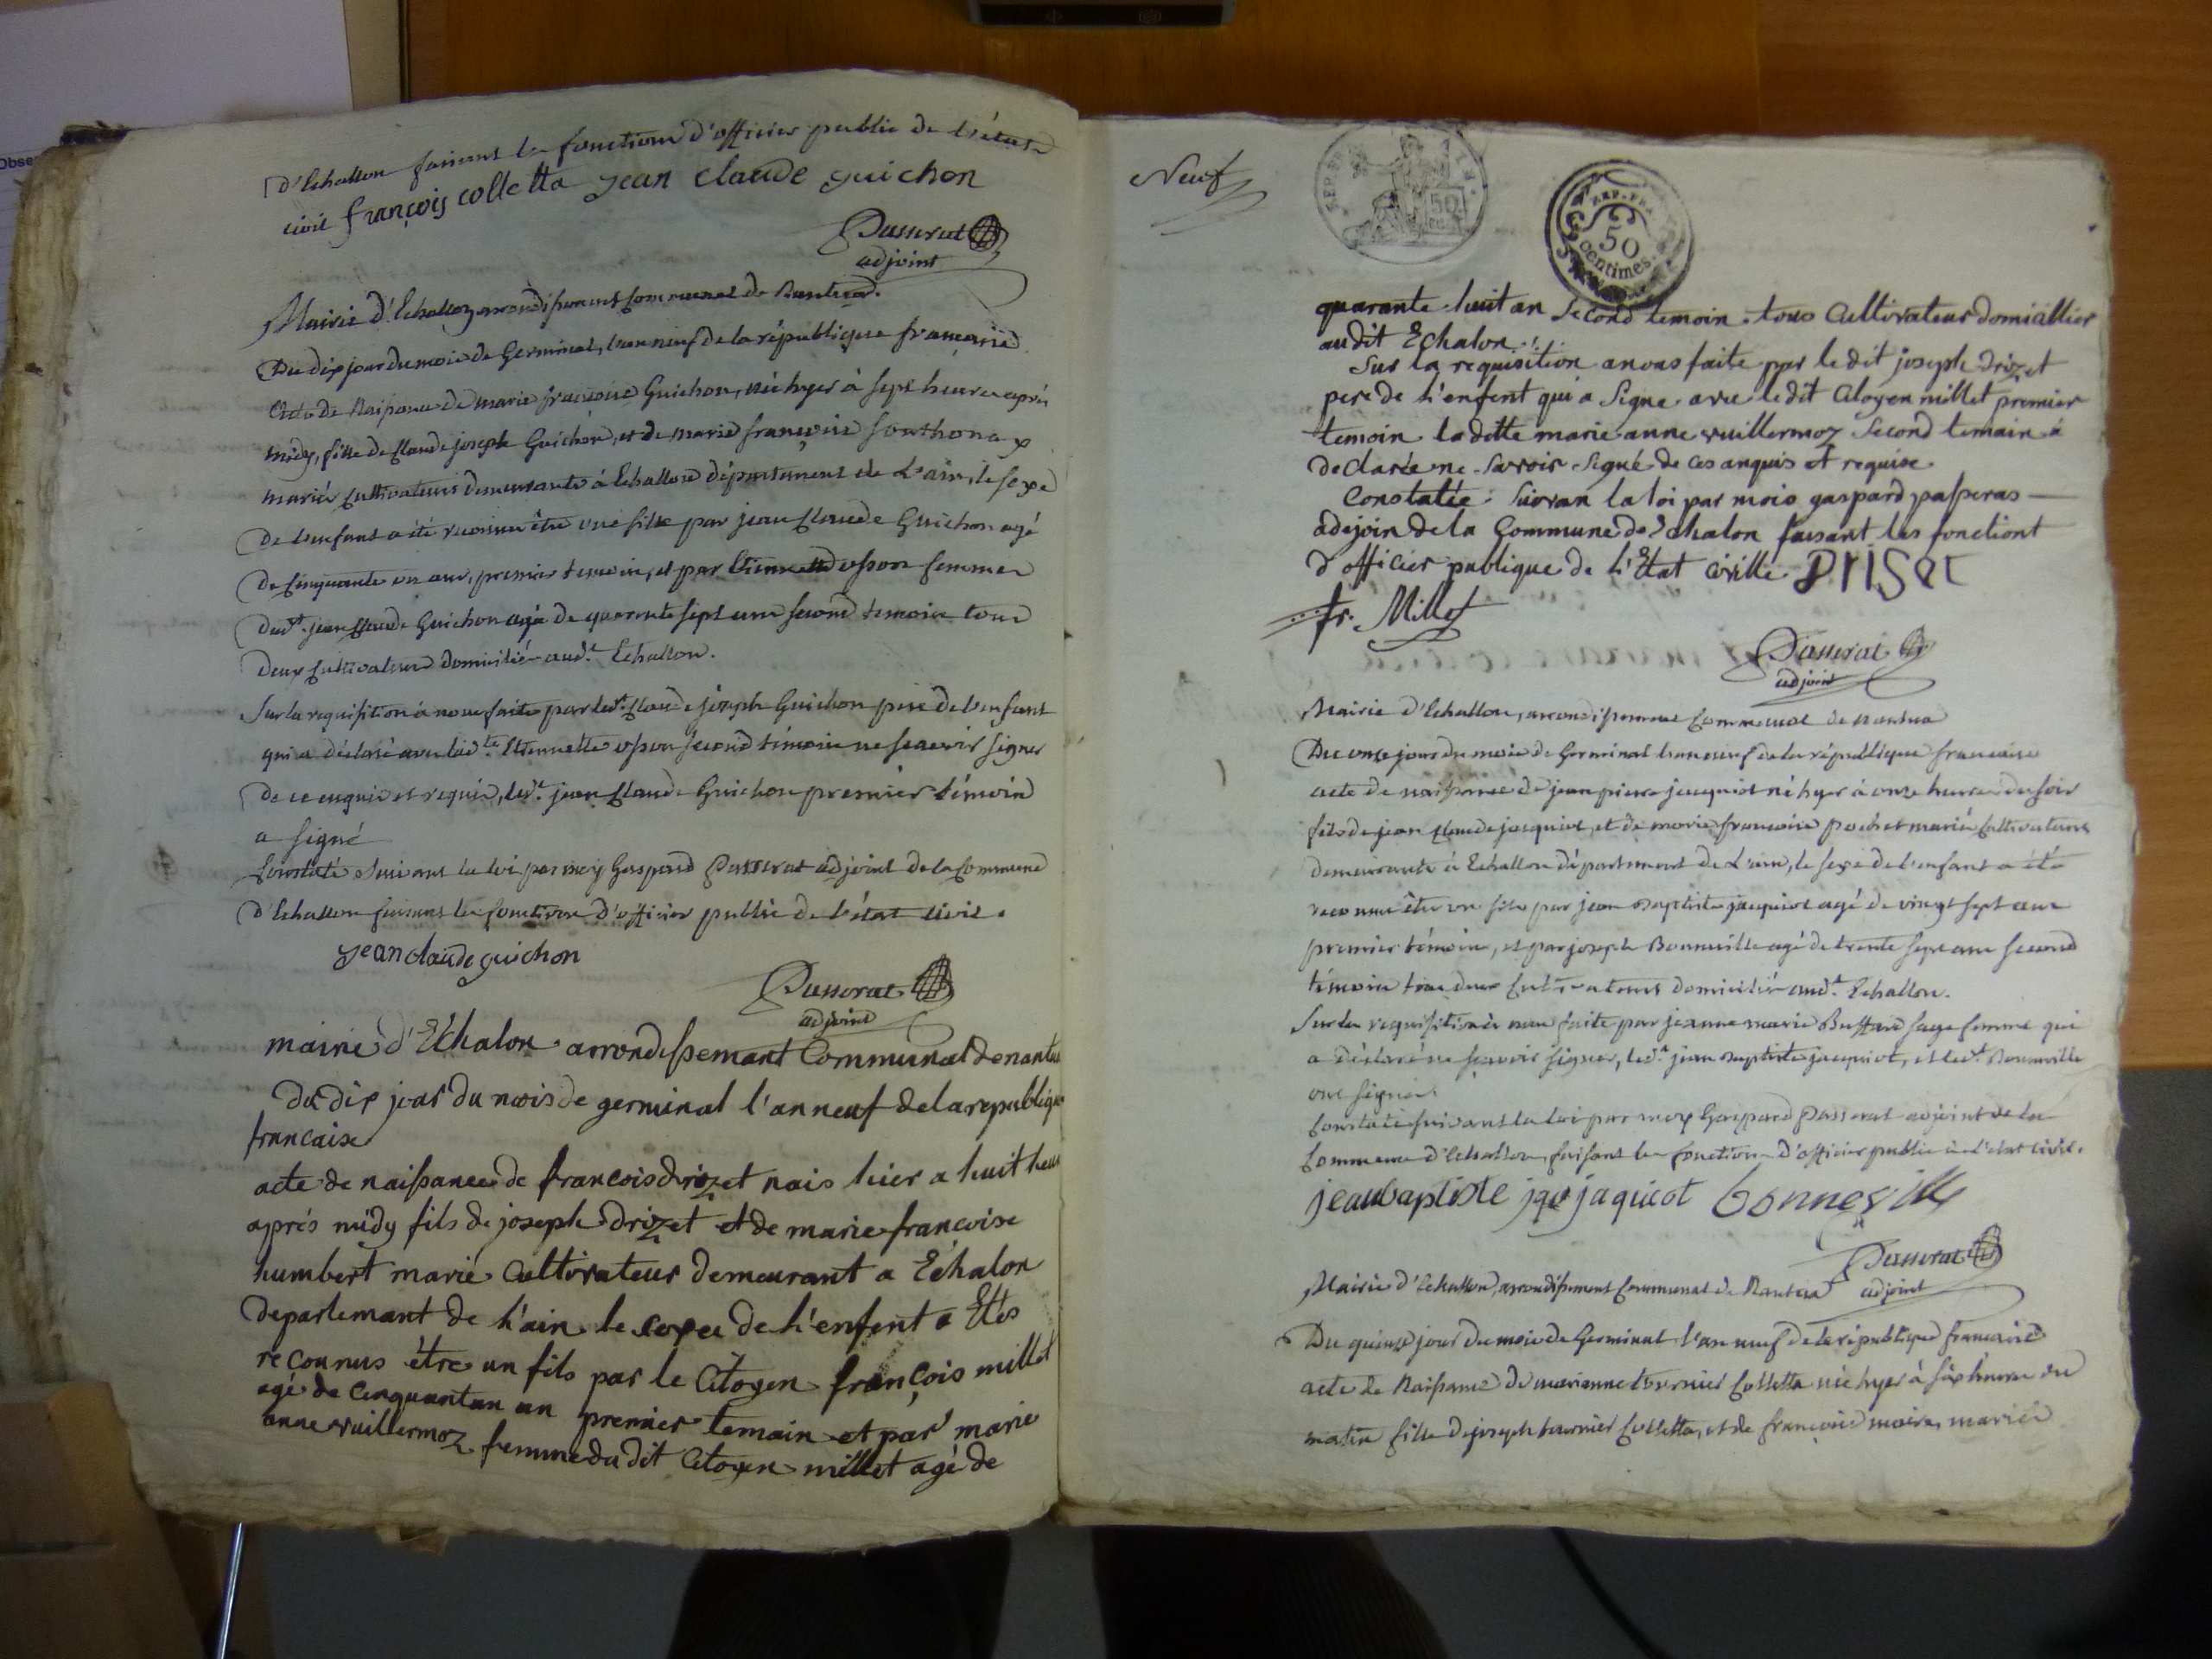 d'Echallon faisant les fonctions d'officier public de l'état
civil françois colletta jean claude guichon
Passerat
adjoint
Mairie d'Echallon arrondissement Communal de Nantua.
Du dix jour du mois de Germinal, l'an neuf de la république française
Acte de Naissance de marie françoise Guichon, née hyer à sept heures après
midy, fille de Claude joseph Guichon, et de marie françoise sonthonax
mariés cultivateurs demeurants à Echallon département de L'ain, le sexe
de l'enfant a été reconnu être une fille par jean Claude Guichon agé
de cinquante un ans, premier temoin, et par Etiennette upson femme
dud.t jean Claude Guichon agée de quarante sept ans second temoin tous
deux cultivateurs domiciliés aud.t Echallon.
Sur la requisition à nous faite par led.t Claude joseph Guichon père de l'enfant
qui a déclaré avec lad.te Etiennette upson second témoin ne scavoir signer
de ce enquis et requis, led.t jean Claude Guichon premier témoin
a signé
Constaté suivant la loi par moy Gaspard Passerat adjoint de la Commune
d'Echallon faisant les fonctions d'officier public de l'état civil.
jean claude guichon
Passerat
adjoint
mairie d'Echalon arrondissemant Communal de nantua
du dix jour du mois de germinal l'an neuf de la republique
francaise
acte de naissance de francois drizet nais hier a huit heur
aprés midy fils de joseph drizet et de marie françoise
humbert marié Cultivateur demeurant a Echalon
departemant de l'ain le sexee de l'enfent a Etés
reconnus être un fils par le Citoyen françois millet
agé de Cinquantan un premier temain et par marie
anne vuillermoz femme du dit Citoyen millet agé de
Neuf
REP. FRA.
50
REP. FRA.
50
centimes.
quarante huit an second temoin tous Cultivateur domicillier
audit Echalon.
Sur la requisition anous faite par le dit joseph drizet
pere de l'enfent qui a Signe avec le dit Citoyen millet premier
temoin ladette marie anne vuillermoz Second temain à
declarée ne savoir signé de ces anquis et requise
Constatée suivan la loi par mois gaspard passeras
adejoin de la Commune de Echalon faisant les fonctiont
d'officier publique de l'Etat civille Driset
fr. Millet
Passerat
adjoint
Mairie d'Echallon, arrondissement Communal de Nantua
Du onze jour du mois de Germinal l'an neuf de la république française
acte de naissance de jean pierre jacquiot né hyer à onze heures du soir
fils de jean Claude jacquiot, et de marie françoise pochet mariés Cultivateurs
demeurants à Echallon département de L'ain, le sexe de l'enfant a été
reconnu être un fils par jean Baptiste jacquiot agé de vingt sept ans
premier témoin, et par joseph Bonneville agé de trente sept ans second
témoin tous deux Cultivateurs domiciliés aud.t Echallon.
Sur la requisition à nous faite par jeanne marie Buffard sage femme qui
a déclaré ne scavoir signer, led.t jean Baptiste jacquiot, et led.t Bonneville
ont signé.
Constaté suivant la loi par moy Gaspard Passerat adjoint de la
Commune d'Echallon, faisant les fonctions d'officier public de l'état civil.
jeaubaptiste jqu jaquiot bonneville
Passerat
adjoint
Mairie d'Echallon, arrondissement Communal de Nantua
Du quinze jour du mois de Germinal l'an neuf de la république française
acte de Naissance de marianne tournier Colletta née hyer à six heures du
matin fille de joseph tournier Colletta, et de françoise maire, mariés